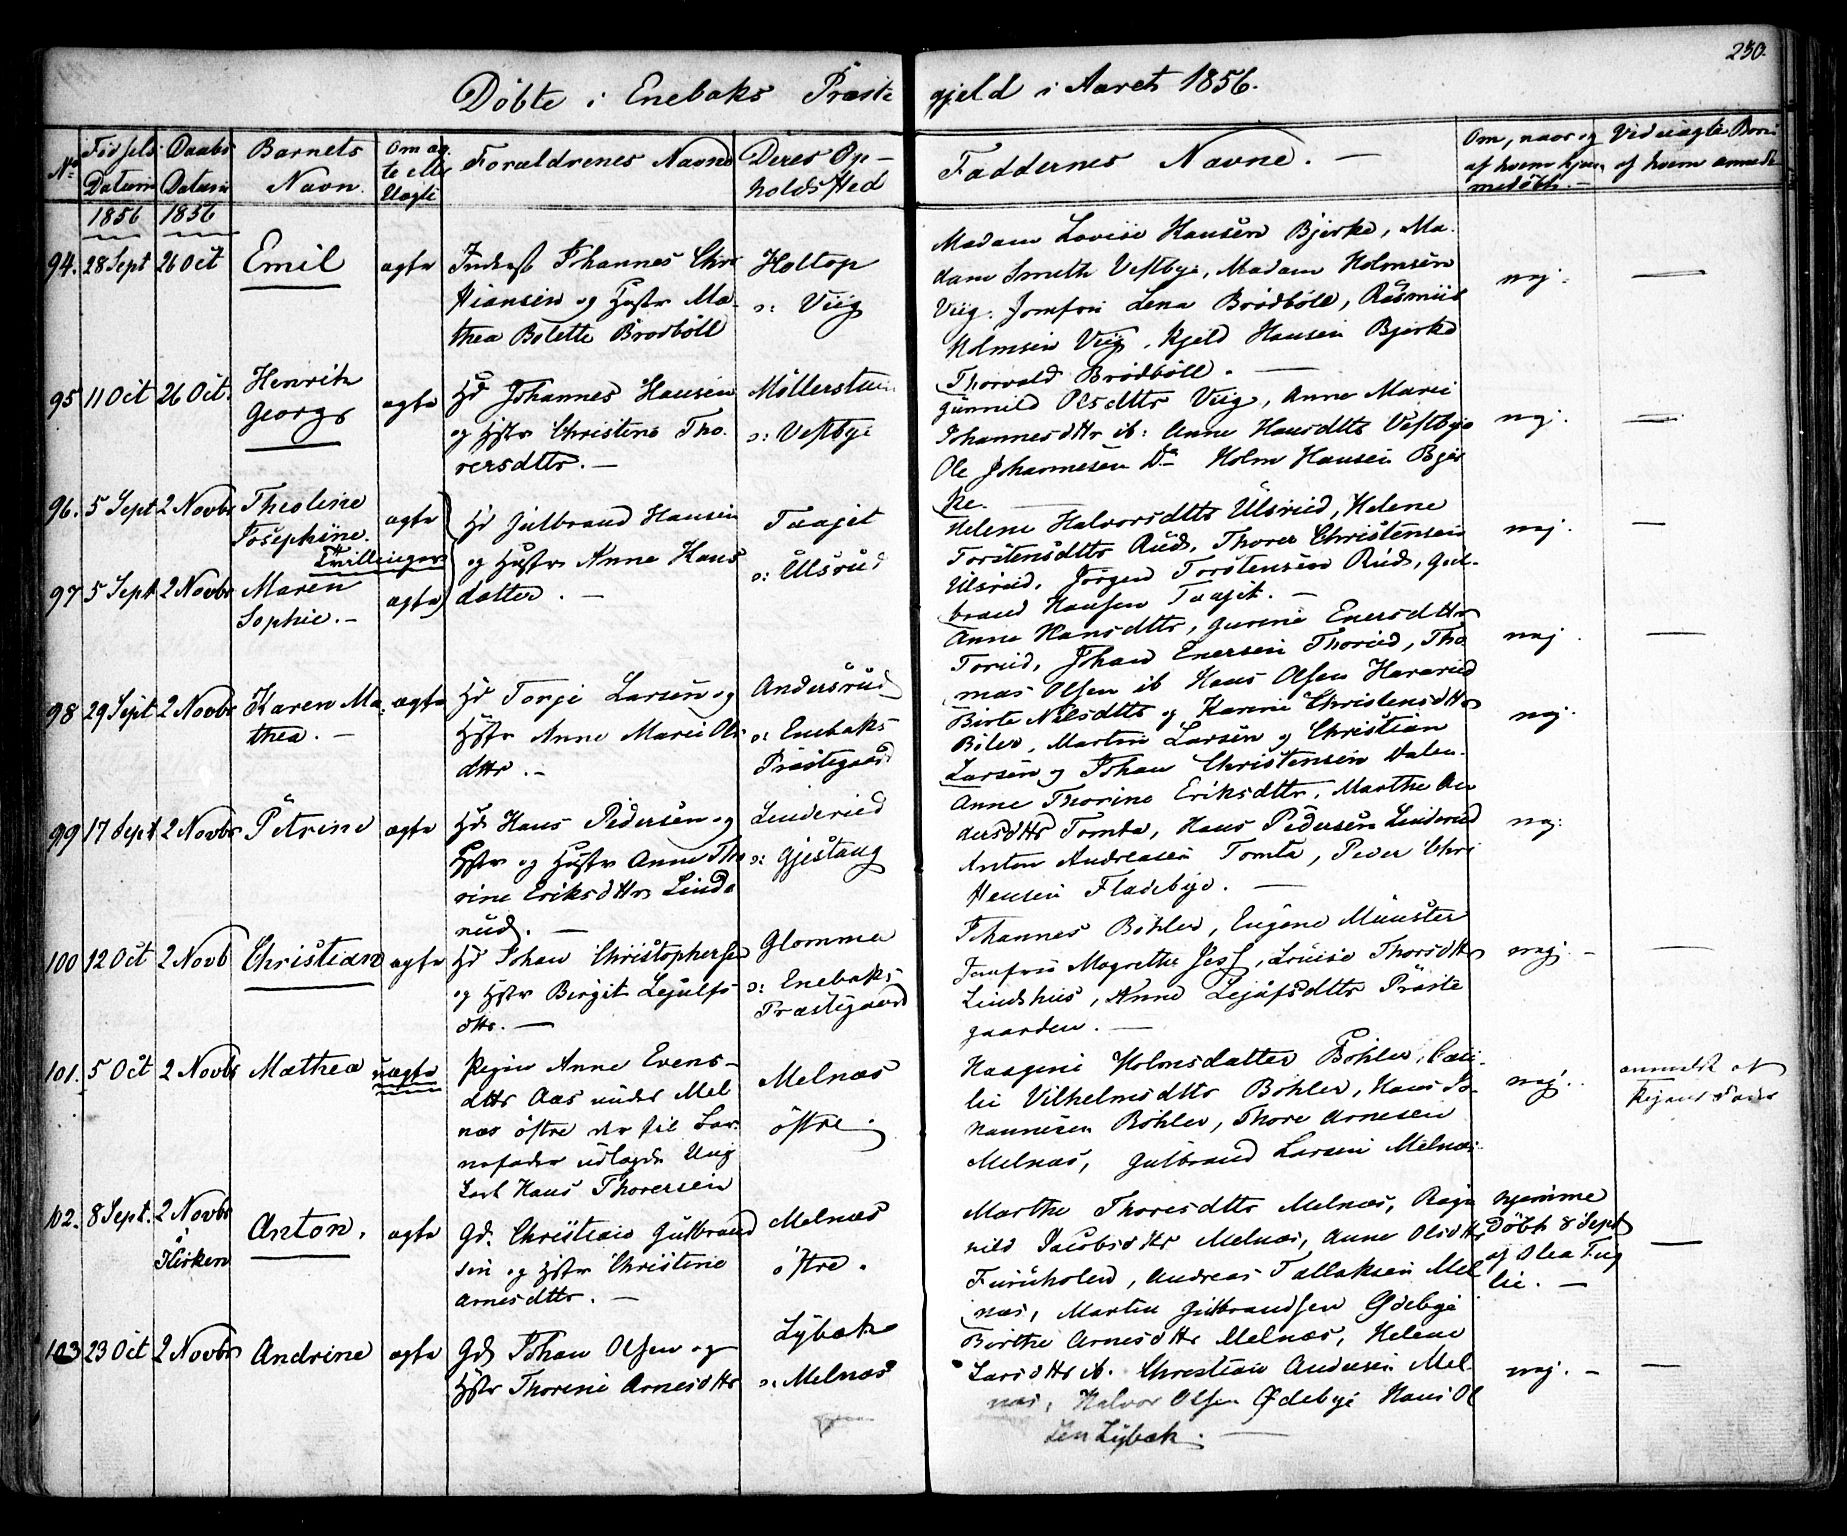 250.
Döbte i Enebaks Præste gjeld i Aaret 1856.
No
Födsels Datum
Daabs Datum
Barnets Navn
Om ægte eller Uægte
Forældrenes Navne
Deres Op-
holdsSted
Faddernes Navne. —
Om, naar og
af hvem hjem
medöbt. —
Ved uægte Börn
af hvem anmeldt
1856 1856
94. 28 Sept 26 Oct Emil ægte
Inderst Johannes Chri
stiansen og Hustr Ma-
thea Bolette Brödböll
Holtop
u: Viig
Madam Lovise Hansen Bjerke, Ma-
dam Smith Vestbye, Madam Holmsen
Viig. Jomfru Lena Brödböll, Rasmus
Holmsen Viig, Kjeld Hansen Bjerke
Thorvald Brödböll. —
nej. —
95 11 Oct 26 Oct.
Henrik
Georg
ægte
Hd Johannes Hansen
og Hstr Christine Tho-
rersdttr. —
Möllerstuen
u: Vestbye
Gunnild Olsdttr Viig, Anne Marie
Johannesdttr ib: Anne Hansdttr Vestbye
Ole Johannesen Do Holm Hansen Bjer
ke.
nej. —
96. 5 Sept 2 Novbr Theoline
Josephine.
ægte
Tvillinger
Hd Gulbrand Hansen
og Hustr Anne Hans
datter. —
Taajet
u: Ulsrud
Helene Halvorsdttr Ulsrud, Helene
Torstensdttr Rud, Thorer Christensen
Ulsrud, Jörgen Torstensen Rud, Gul-
brand Hansen Taajet. —
nej. —
97 5 Sept 2 Novbr Maren
Sophie. —
ægte
Anne Hansdttr, Gurine Enersdttr
Torud, Johan Enersen Thorud, Tho
mas Olsen ib Hans Olsen Hararud
nej. —
98 29 Sept 2 Novbr Karen Ma-
thea. —
ægte
Hd Torge Larsen og
Hstr Anne Marie Ols
dttr. —
Andersrud
u: Enebaks
Præstegaard
Birte Nilsdttr og Karine Christensdttr
Böler, Martin Larsen og Christian
Larsen og Johan Christensen Dalen.
nej.
99 17 Sept 2 Novbr Petrine ægte
Hd Hans Pedersen og
Hstr og Hustr Anne Tho
rine Eriksdttr Linde
rud. —
Linderud
u: Gjestang
Anne Thorine Eriksdttr, Marthe An
dersdttr Tomta, Hans Pedersen Linderud
Anton Andreasen Tomta, Peder Chri
stensen Fladebye. —
nej:
100 12 Oct 2 Novb Christian ægte
Hd Johan Christophersen
og Hstr Birgit Lejulfs
dttr. —
Glomma
u: Enebaks
Præstegaard
Johannes Böhler, Eugene Münster
Jomfru Magrethe Jess, Lovise Thorsdttr
Lindhus, Anne Lejulfsdttr Præste
gaarden. —
nej. — —
101. 5 Oct 2 Novbr Mathea uægte
Pigen Anne Evens-
dttr Aas under Mel
næs östre der til Bar-
nefader udlagde Ung
karl Hans Thorersen
Melnæs
östre.
Haagine Holmsdatter Böhler, Ceci-
lie Vilhelmsdttr Böhler, Hans Jo-
hannesen Böhler, Thore Arnesen
Melnæs, Gulbrand Larsen Melnæs
nej.
anmeldt af
102. 8 Sept. 2 Novbr
i Kirken
Anton. ægte
Gd. Christian Gulbrand
sen og Hstr Christine
Arnesdttr. —
Melnæs
östre.
Marthe Thoresdttr Melnæs, Ragn
hild Jacobsdttr Melnæs, Anne Olsdttr
Furuholen, Andreas Tallaksen Mel
næs, Martin Gulbrandsen Ödebye
hjemme
Döbt 8 Sept
af Olea Fug
lie. —
—
103 23 Oct 2 Novbr Andrine ægte
Gd Johan Olsen og
Hstr Thorine Arnesdttr
Lybæk
u: Melnæs
Birthe Arnesdttr Melnæs, Helene
Larsdttr ib. Christian Andersen Mel-
næs, Halvor Olsen Ödebye Hans Ol
sen Lybæk. —
nej. — —